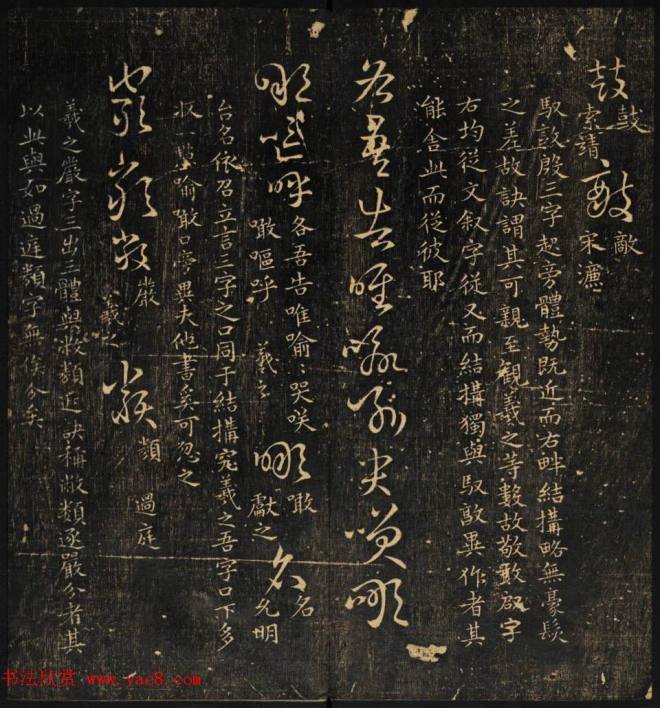 鼓 鼓 索靖 敵 敵 宋濂
馭 敦 殷三字起旁體勢既近而右畔結搆略無豪髮
之差故訣謂其可親至觀羲之等數故敬敢 字
右均從文叙字從又而結搆獨與馭 異作者其
能舍此而從彼耶
各吾告唯喻喻哭咲噉
噉嘔呼 各吾告唯喻〻哭咲 噉 羲之 噉 獻之 名 名 允明
台名依召立言三字之口同于結搆究羲之吾字口下多
收一點喻噉口旁異夫他書矣可忽之
嚴嚴嚴 嚴 羲之 類 類 過庭
羲之嚴字三出三體與 類近訣稱 類逐嚴分者其
以此與如過庭類字無俟分矣
书法欣赏 www.yac8.com